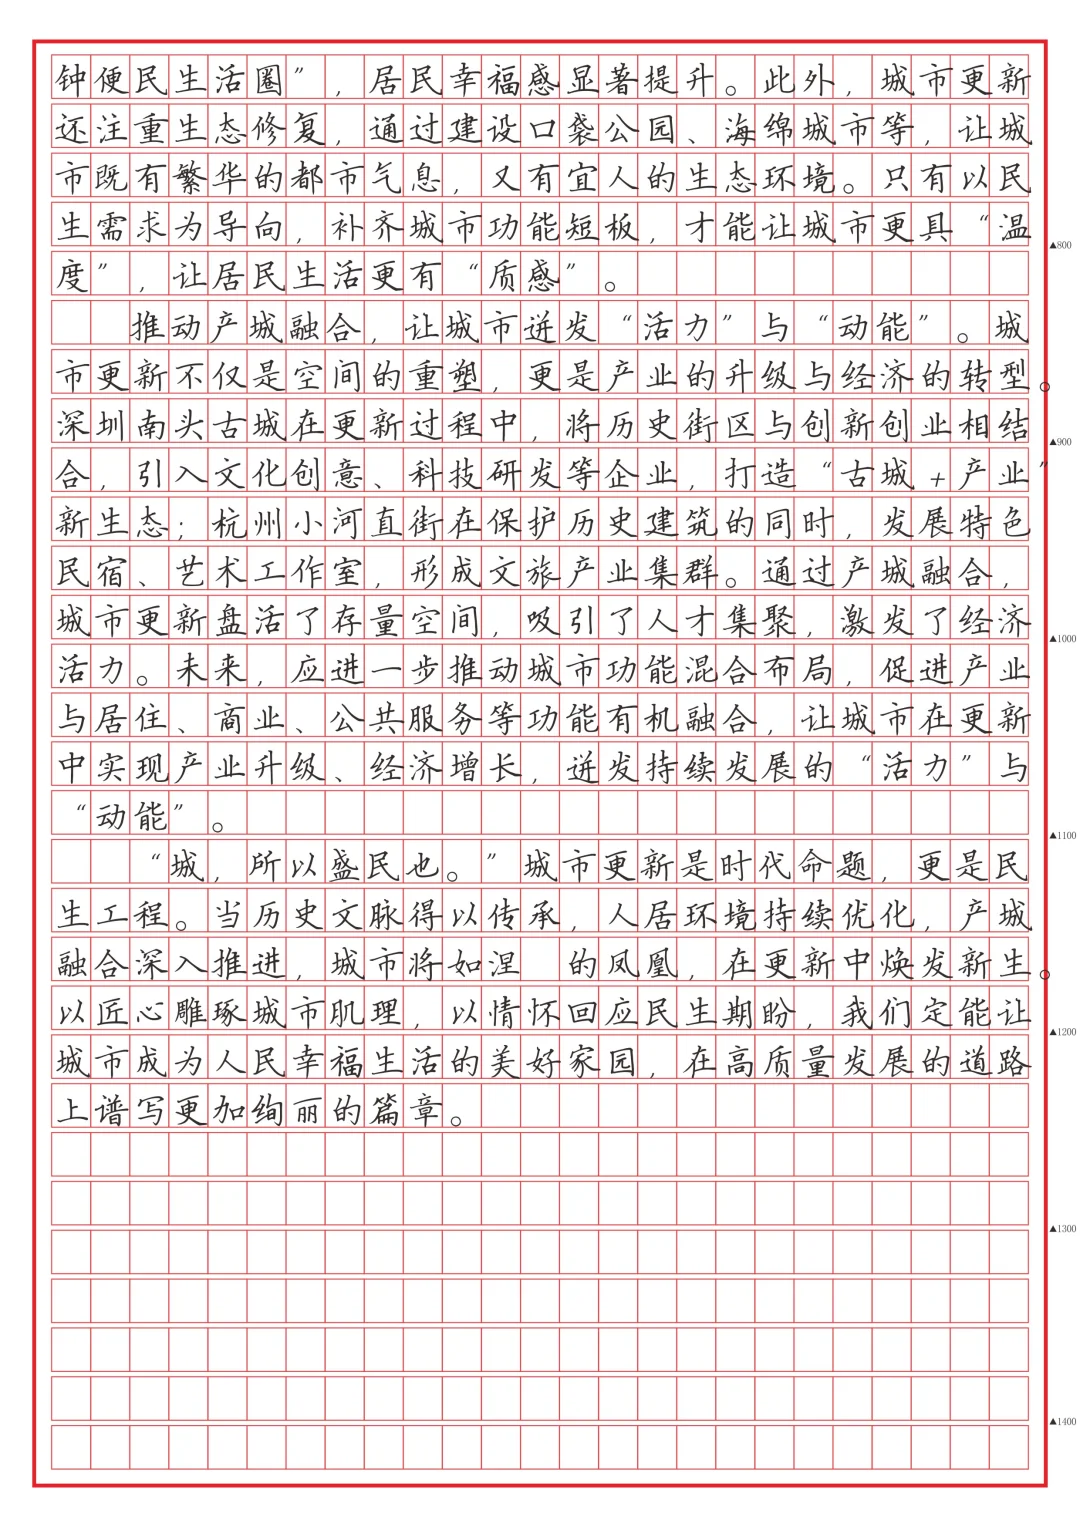 钟便民生活圈”，居民幸福感显著提升。此外，城市更新
还注重生态修复，通过建设口袋公园、海绵城市等，让城
市既有繁华的都市气息，又有宜人的生态环境。只有以民
生需求为导向，补齐城市功能短板，才能让城市更具“温
▲800
度”，让居民生活更有“质感”。
推动产城融合，让城市迸发“活力”与“动能”。城
市更新不仅是空间的重塑，更是产业的升级与经济的转型。
深圳南头古城在更新过程中，将历史街区与创新创业相结
▲900
合，引入文化创意、科技研发等企业，打造“古城+产业”
新生态；杭州小河直街在保护历史建筑的同时，发展特色
民宿、艺术工作室，形成文旅产业集群。通过产城融合，
城市更新盘活了存量空间，吸引了人才集聚，激发了经济
▲1000
活力。未来，应进一步推动城市功能混合布局，促进产业
与居住、商业、公共服务等功能有机融合，让城市在更新
中实现产业升级、经济增长，迸发持续发展的“活力”与
“动能”。
▲1100
“城，所以盛民也。”城市更新是时代命题，更是民
生工程。当历史文脉得以传承，人居环境持续优化，产城
融合深入推进，城市将如涅 的凤凰，在更新中焕发新生。
以匠心雕琢城市肌理，以情怀回应民生期盼，我们定能让
▲1200
城市成为人民幸福生活的美好家园，在高质量发展的道路
上谱写更加绚丽的篇章。
▲1300
▲1400